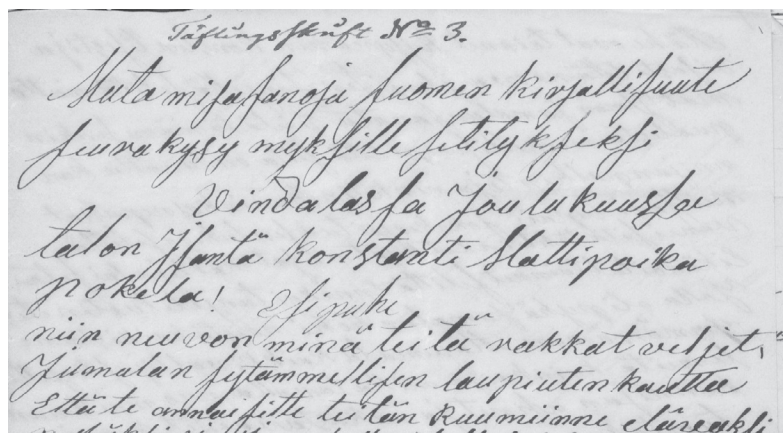 Täflingsskrift No 3.
Muta misa sanoja suomen kirjallisuute
seura kysy myksille selityksseksi
Vindalassa Joulukuussa
talon Isäntä Konstanti Mattipoika
pokela!
Esipuhe
niin neuvon minä teitä rakkat veljet,
Jumalan sytämmellisen laupiuten kautta
Että te annaisitte teitän ruumiinne eläväksi